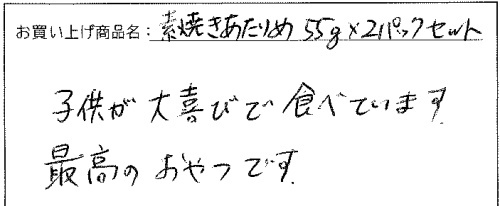 お買い上げ商品名：素焼きあたりめ55g×2パックセット
子供が大喜びで食べています
最高のおやつです.